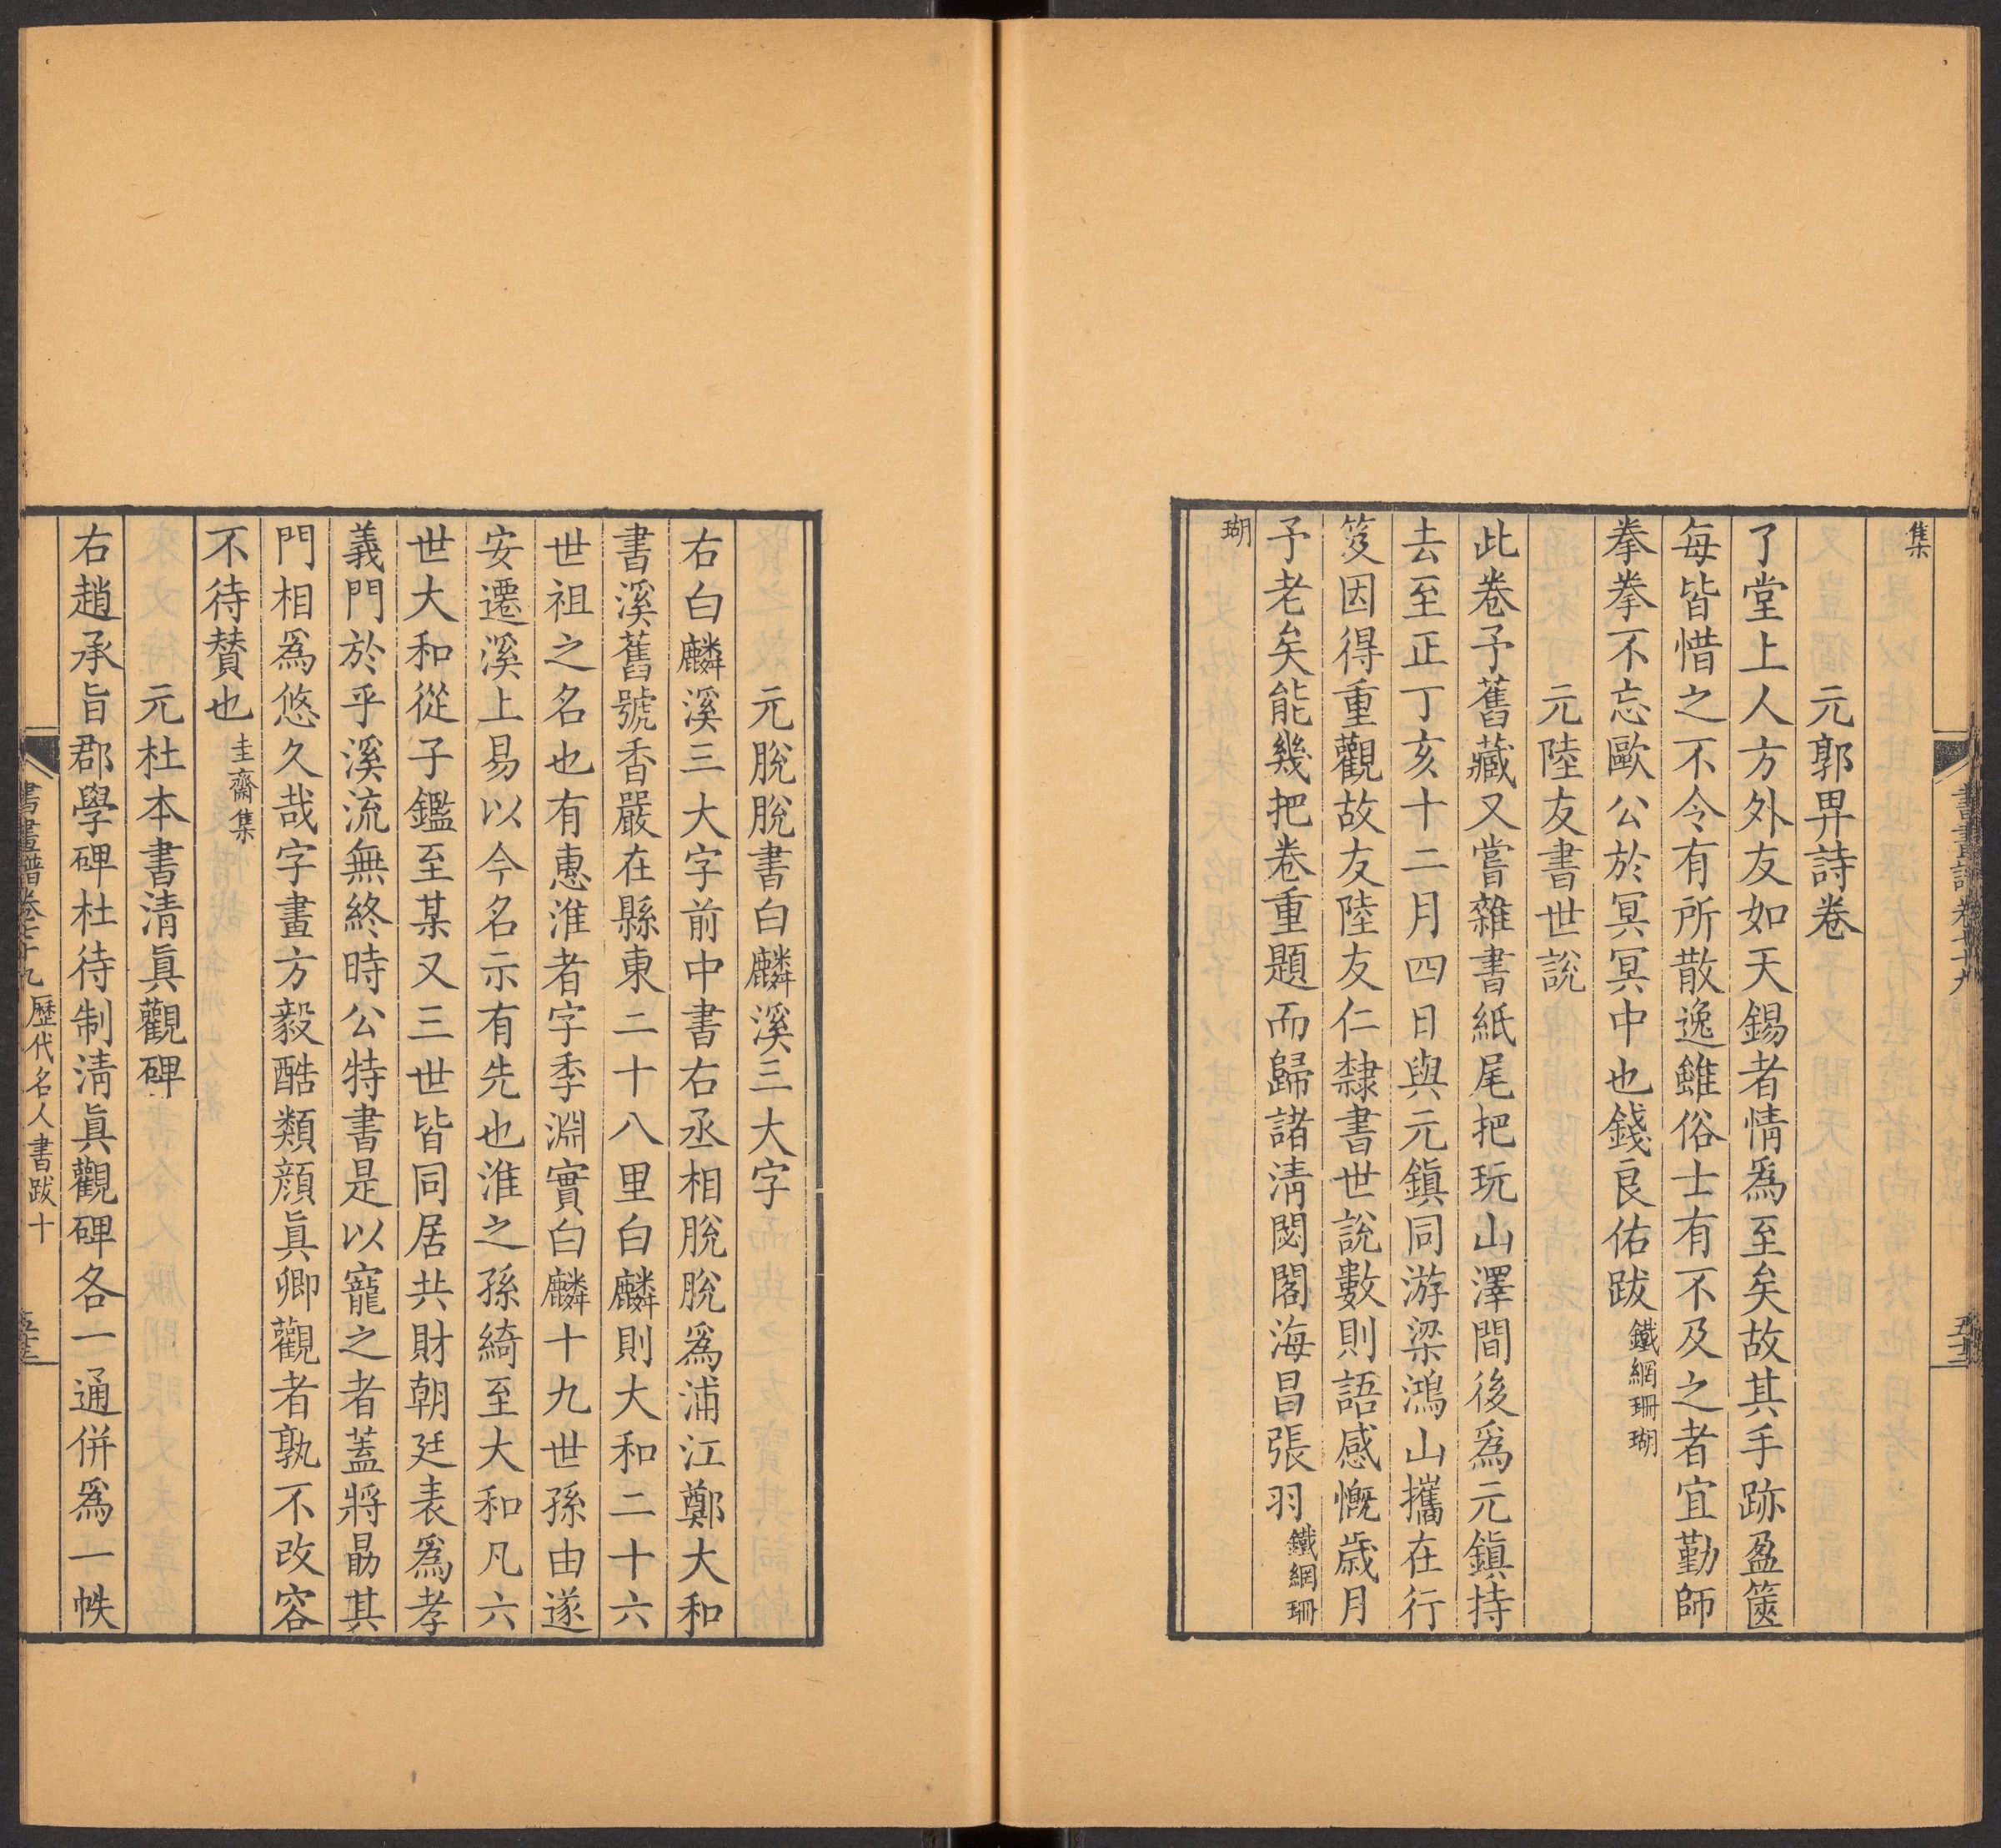 集
元郭畀詩卷
了堂上人方外友如天錫者情爲至矣故其手跡盈篋
每皆惜之不令有所散逸雖俗士有不及之者宜勤師
拳拳不忘歐公於冥冥中也錢良佑跋鐵網珊瑚
元陸友書世說
此卷予舊藏又嘗雜書紙尾把玩山澤間後爲元鎮持
去至正丁亥十二月四日與元鎮同游梁鴻山攜在行
笈因得重觀故友陸友仁隸書世說數則語感慨歲月
予老矣能幾把卷重題而歸諸淸閟閣海昌張羽鐵網珊
瑚
元脫脫書白麟溪三大字
右白麟溪三大字前中書右丞相脫脫爲浦江鄭大和
書溪舊號香嚴在縣東二十八里白麟則大和二十六
世祖之名也有惠淮者字季淵實白麟十九世孫由遂
安遷溪上易以今名示有先也淮之孫綺至大和凡六
世大和從子鑑至某又三世皆同居共財朝廷表爲孝
義門於乎溪流無終時公特書是以寵之者蓋將勗其
門相爲悠久哉字畫方毅酷類顔眞卿觀者孰不改容
不待贊也圭齋集
元杜本書淸眞觀碑
右趙承旨郡學碑杜待制淸眞觀碑各一通併爲一帙
書畫譜卷七十九 歷代名人書跋十